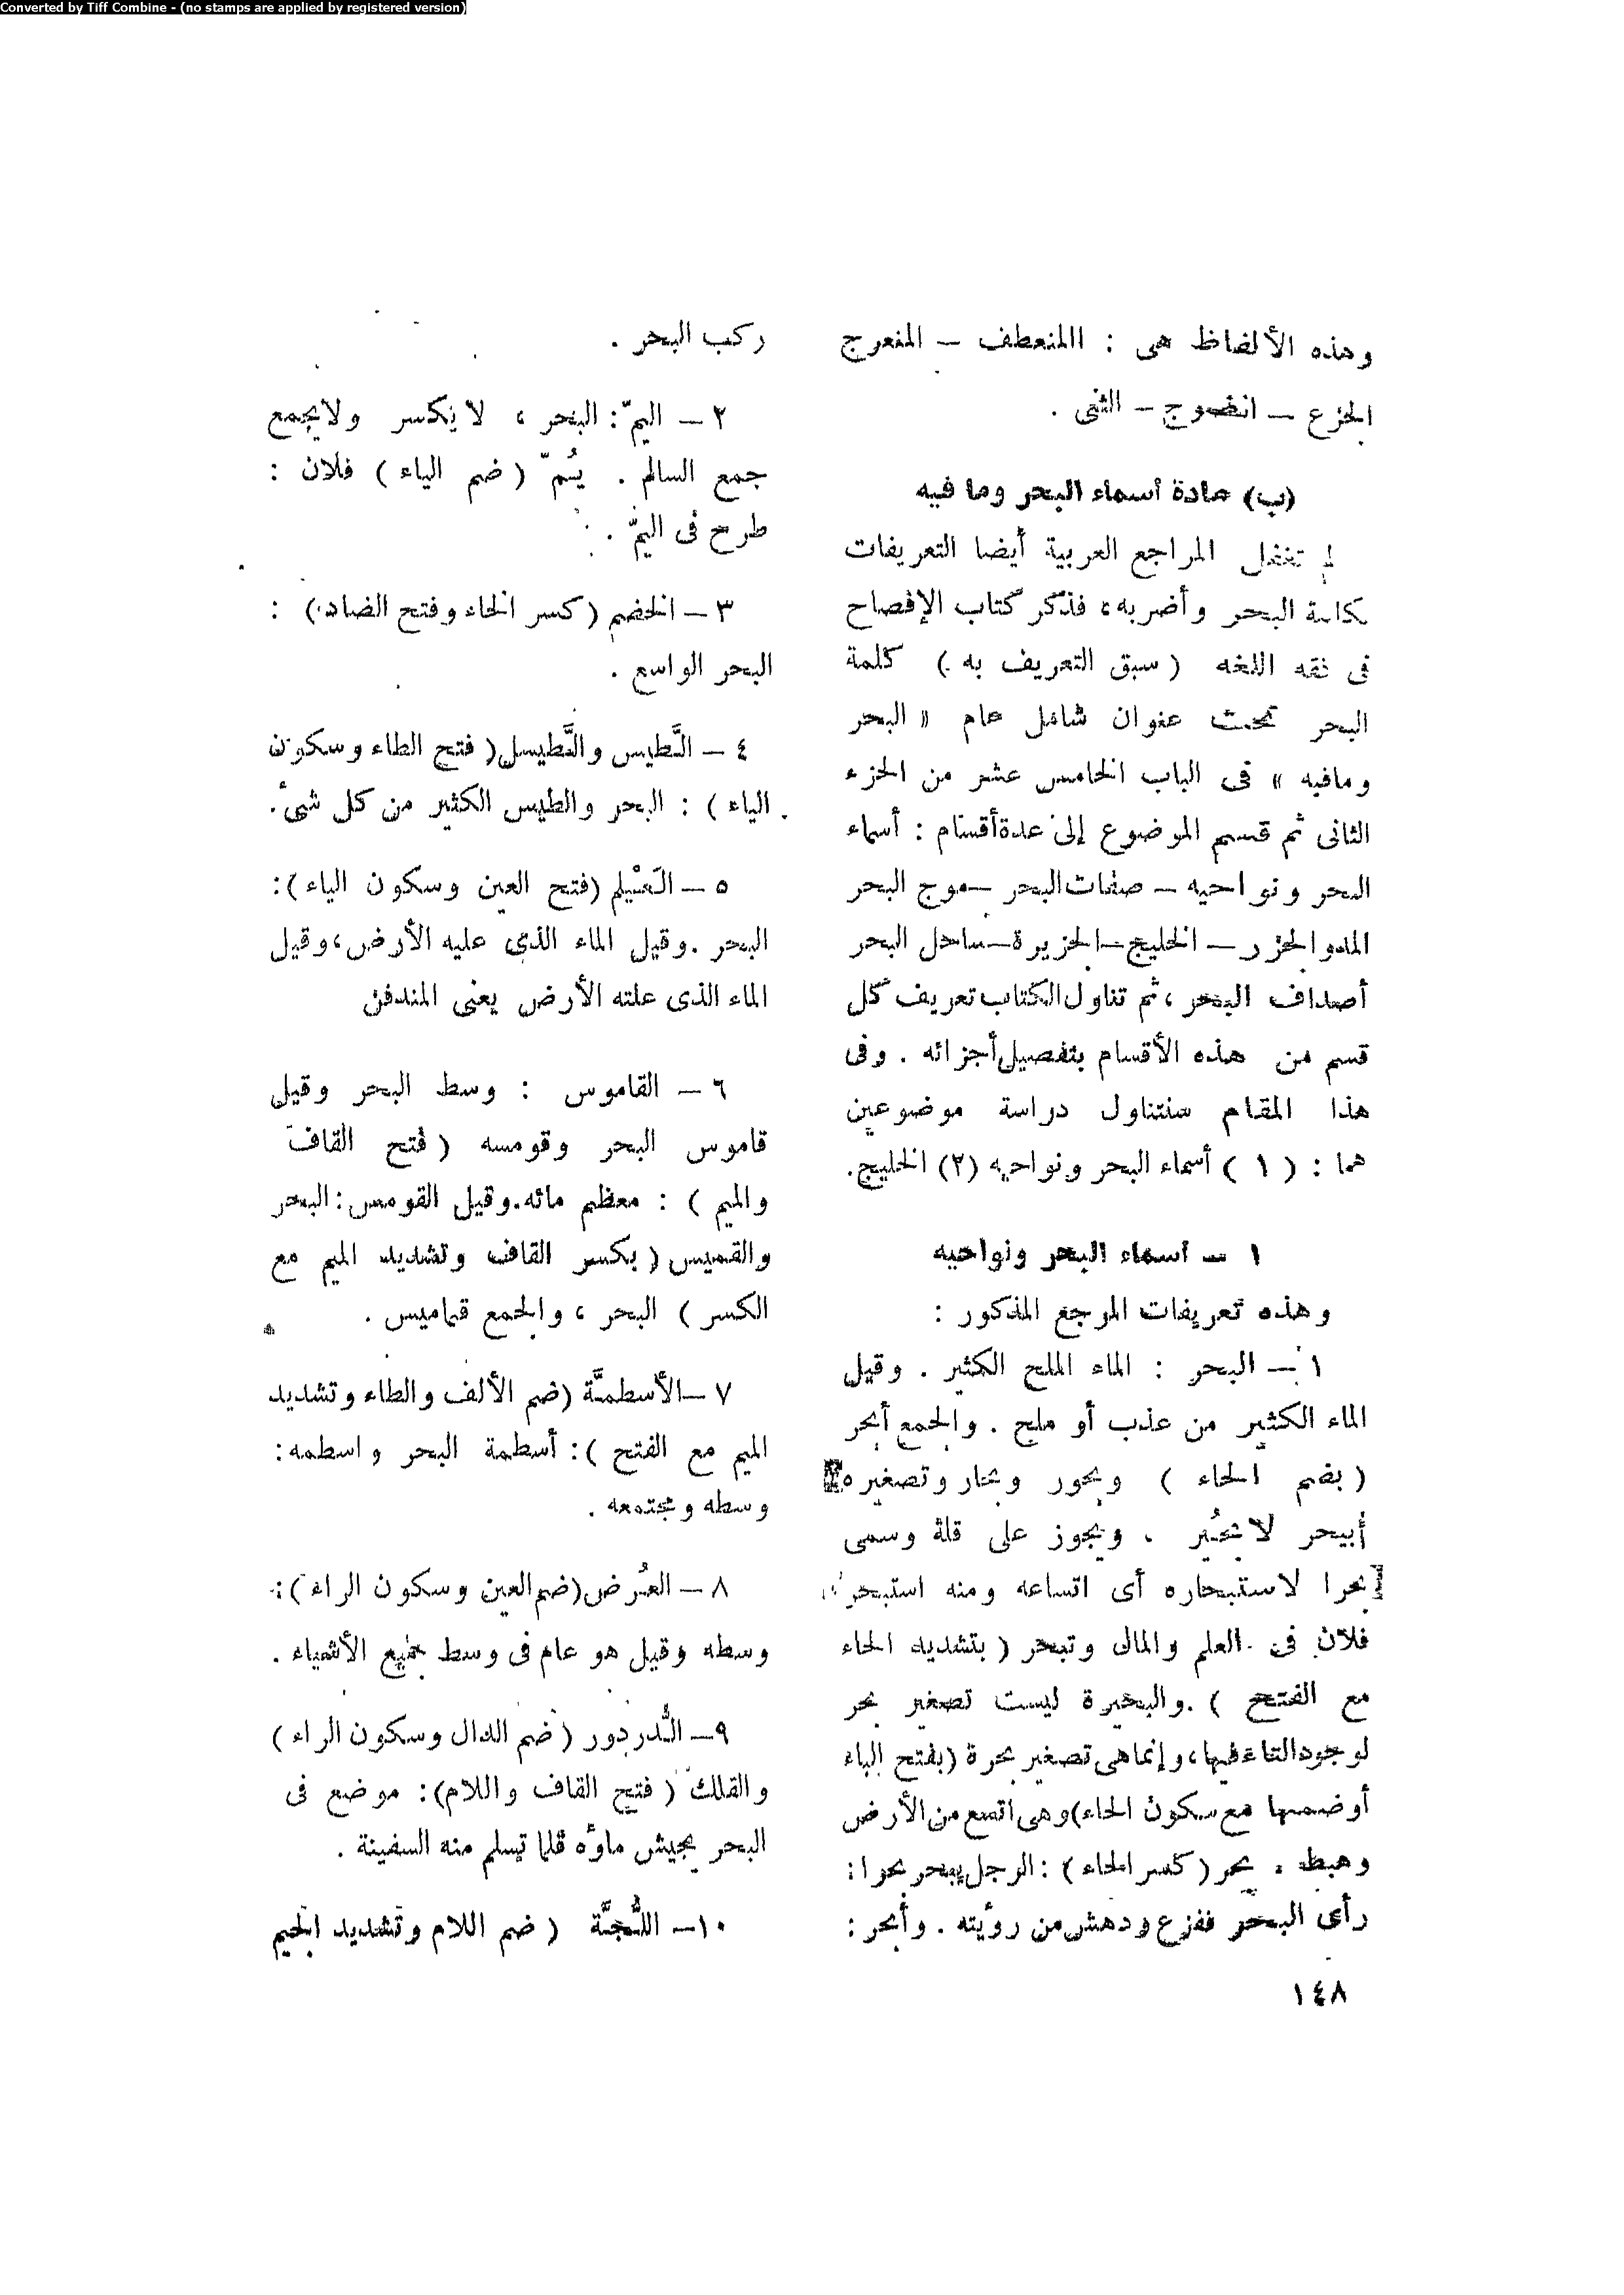 Converted by Tiff Combine - (no stamps are applied by registered version)
وهذه الألفاظ هى : االمنعطف – المنعرج
الجزع – الضوج – الثنى .
(ب) مادة أسماء البحر وما فيه
لم تغفل المراجع العربية أيضا التعريفات
بكلمة البحر وأضربه، فذكر كتاب الإفصاح
فى فقه اللغه ( سبق التعريف به ) كلمة
البحر تحت عنوان شامل عام « البحر
ومافيه » فى الباب الخامس عشر من الجزء
الثانى ثم قسم الموضوع إلى عدة أقسام : أسماء
البحر ونواحيه – صفات البحر – موج البحر
المدو الجزر – الخليج – الجزيرة – ساحل البحر
أصداف البحر ، ثم تناول الكتاب تعريف كل
قسم من هذه الأقسام بتفصيل أجزائه . وفى
هذا المقام سنتناول دراسة موضوعين
هما : ( ١ ) أسماء البحر ونواحيه (٢) الخليج.
١ – أسماء البحر ونواحيه
وهذه تعريفات المرجع المذكور :
١ – البحر : الماء الملح الكثير . وقيل
الماء الكثير من عذب أو ملح . والجمع أبحر
( بضم الحاء ) وبحور وبحار وتصغيره
أبيحر لا بُحير . ويجوز على قلة وسمى
بحرا لاستبحاره أى اتساعه ومنه استبحر
فلان فى العلم والمال وتبحر ( بتشديد الحاء
مع الفتح ) .والبحيرة ليست تصغير بحر
لوجود التاء فيها، وإنما هى تصغير بحرة (بفتح الباء
أو ضمها مع سكون الحاء) وهى اتسع من الأرض
وهبط . بحر ( كسر الحاء ) : الرجل يبحر بحرا :
رأى البحر ففزع ودهش من رؤيته . وأبحر :
ركب البحر .
٢ – اليمّ : البحر ، لا يكسر ولا يجمع
جمع السالم . يُمّ ( ضم الياء ) فلان :
طرح فى اليمّ .
٣ – الخضم (كسر الخاء وفتح الضاد) :
البحر الواسع .
٤ – الطَّيس والطَّيسل ( فتح الطاء وسكون
الياء ) : البحر والطيس الكثير من كل شىء.
٥ – العَيْلم (فتح العين وسكون الياء ):
البحر .وقيل الماء الذى عليه الأرض، وقيل
الماء الذى علته الأرض يعنى المندفن
٦ – القاموس : وسط البحر وقيل
قاموس البحر وقومسه ( فتح القاف
والميم ) : معظم مائه.وقيل القومس : البحر
والقميس ( بكسر القاف وتشديد الميم مع
الكسر ) البحر ، والجمع قماميس .
٧ – الأسطمَّة (ضم الألف والطاء وتشديد
الميم مع الفتح ): أسطمة البحر واسطمه :
وسطه ومجتمعه .
٨ – العُرض (ضم العين وسكون الراء ):
وسطه وقيل هو عام فى وسط جميع الأشياء .
٩ – الدُّردور ( ضم الدال وسكون الراء )
والقلك ( فتح القاف واللام): موضع فى
البحر يجيش ماؤه قلما تسلم منه السفينة .
١٠ – اللُّجَّة ( ضم اللام وتشديد الجيم
١٤٨